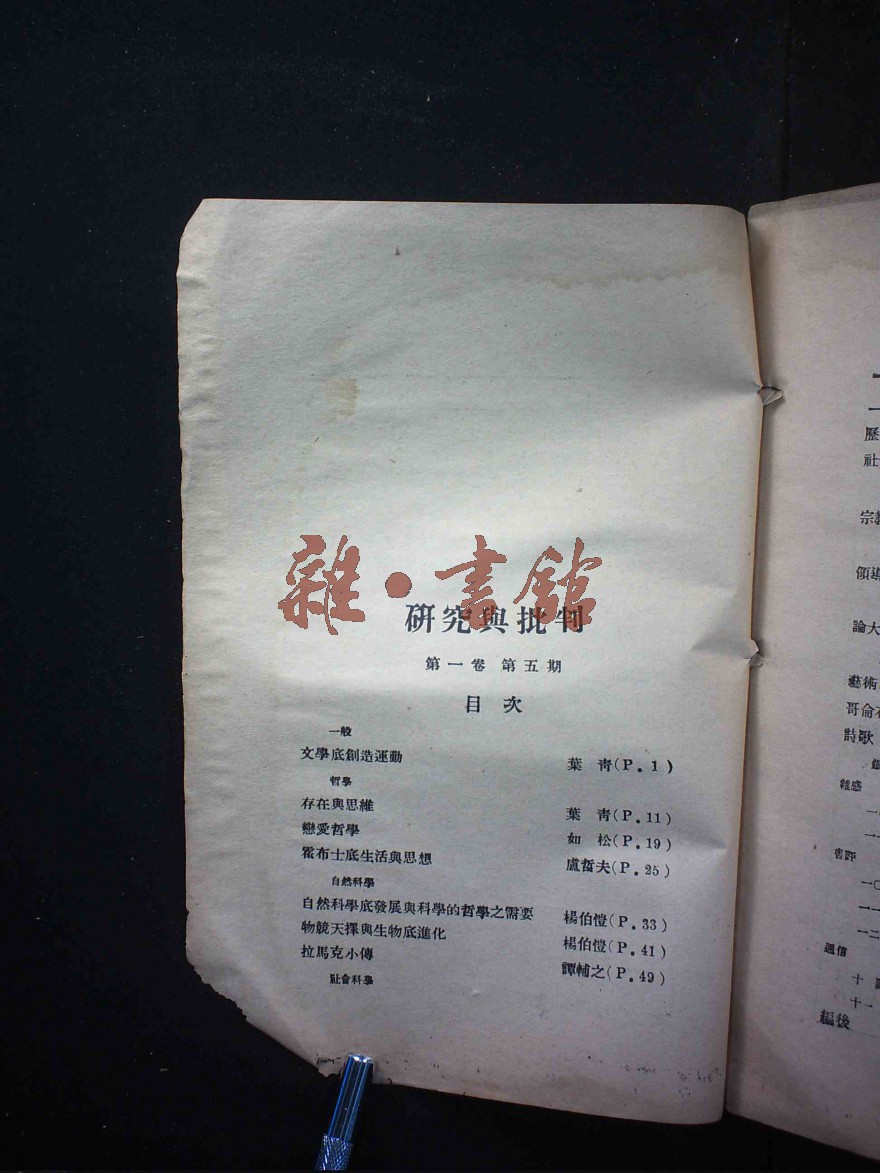 雜·書館
研究與批判
第一卷 第五期
目次
一般
文學底創造運動 葉青(P.1)
哲學
存在與思維 葉青(P.11)
戀愛哲學 如松(P.19)
霍布士底生活與思想 盧哲夫(P.25)
自然科學
自然科學底發展與科學的哲學之需要 楊伯愷(P.33)
物競天擇與生物底進化 楊伯愷(P.41)
拉馬克小傳 譚輔之(P.49)
社會科學
歷
社
宗
領導
論大
藝術
哥侖
詩歌
雜感
書評
一〇
一一
一二
通信
十
十一
編後